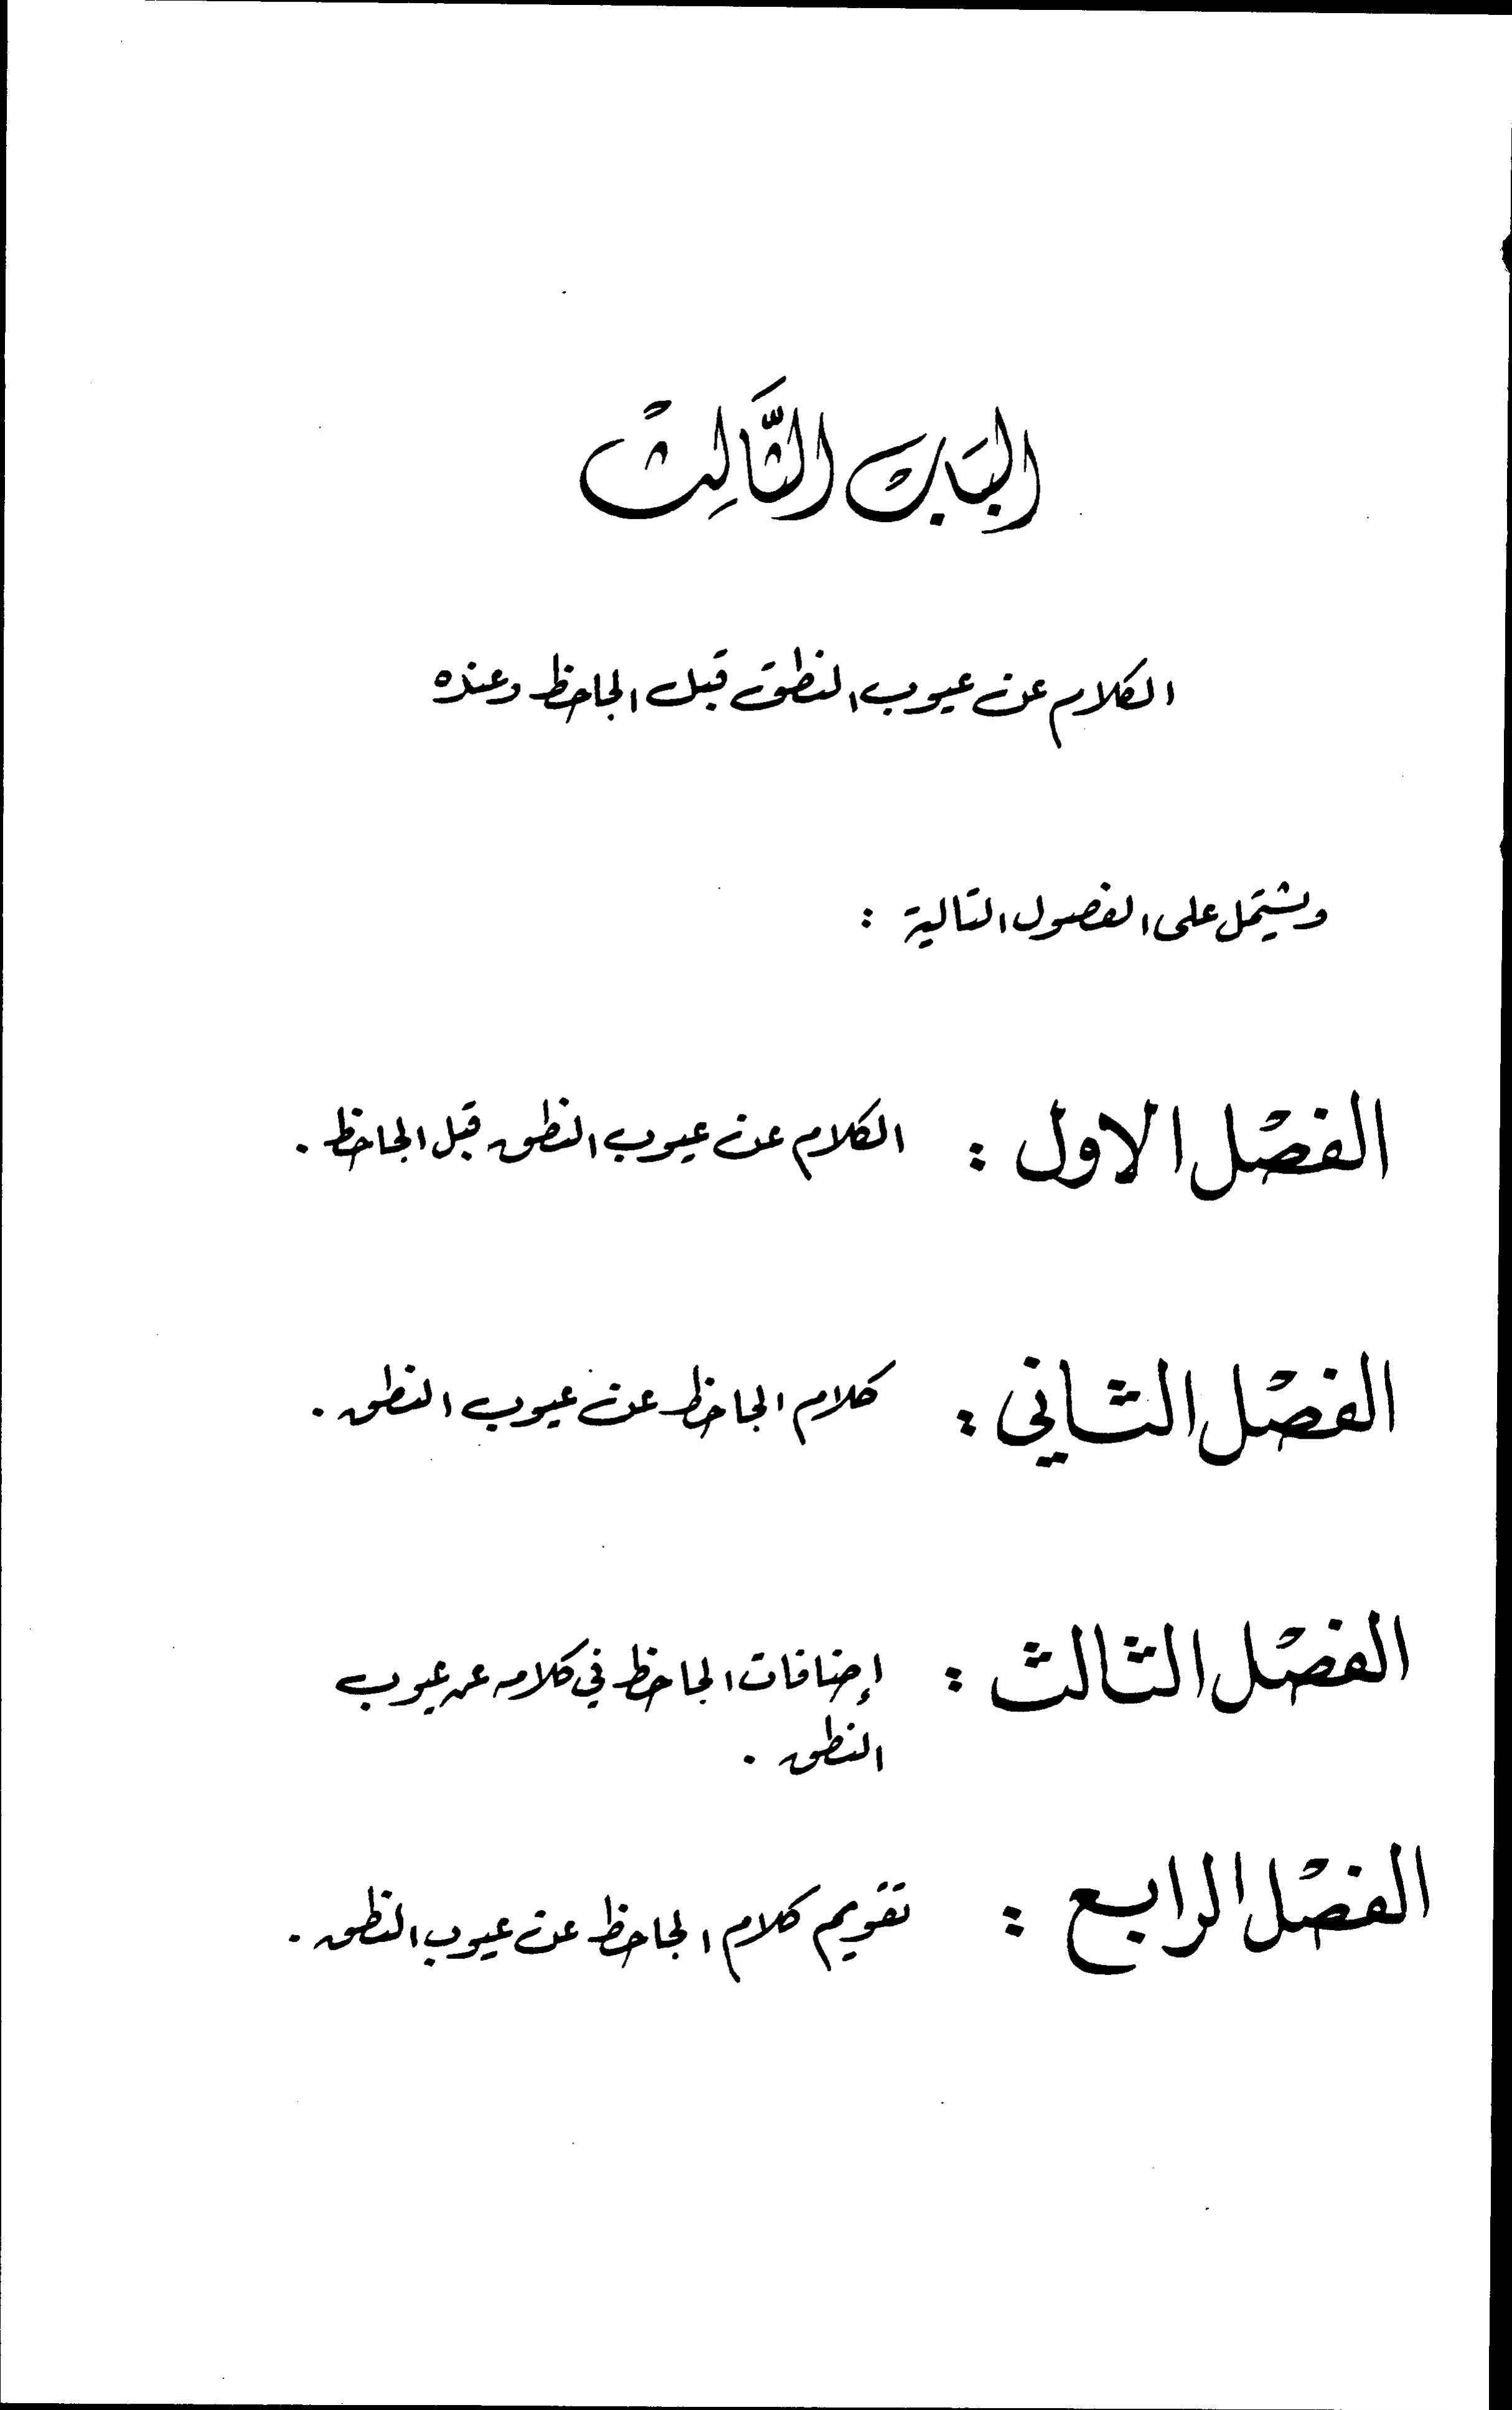 البَابُ الثَّالِثُ
الكلام عن عيوب النطق قبل الجاحظ وعنده
ويشتمل على الفصول التالية :
الفصْل الاول : الكلام عن عيوب النطق قبل الجاحظ .
الفصْل الثاني : كلام الجاحظ عن عيوب النطق .
الفصْل الثالث : إضافات الجاحظ في كلامه عن عيوب
النطق .
الفصْل الرابع : تقويم كلام الجاحظ عن عيوب النطق .